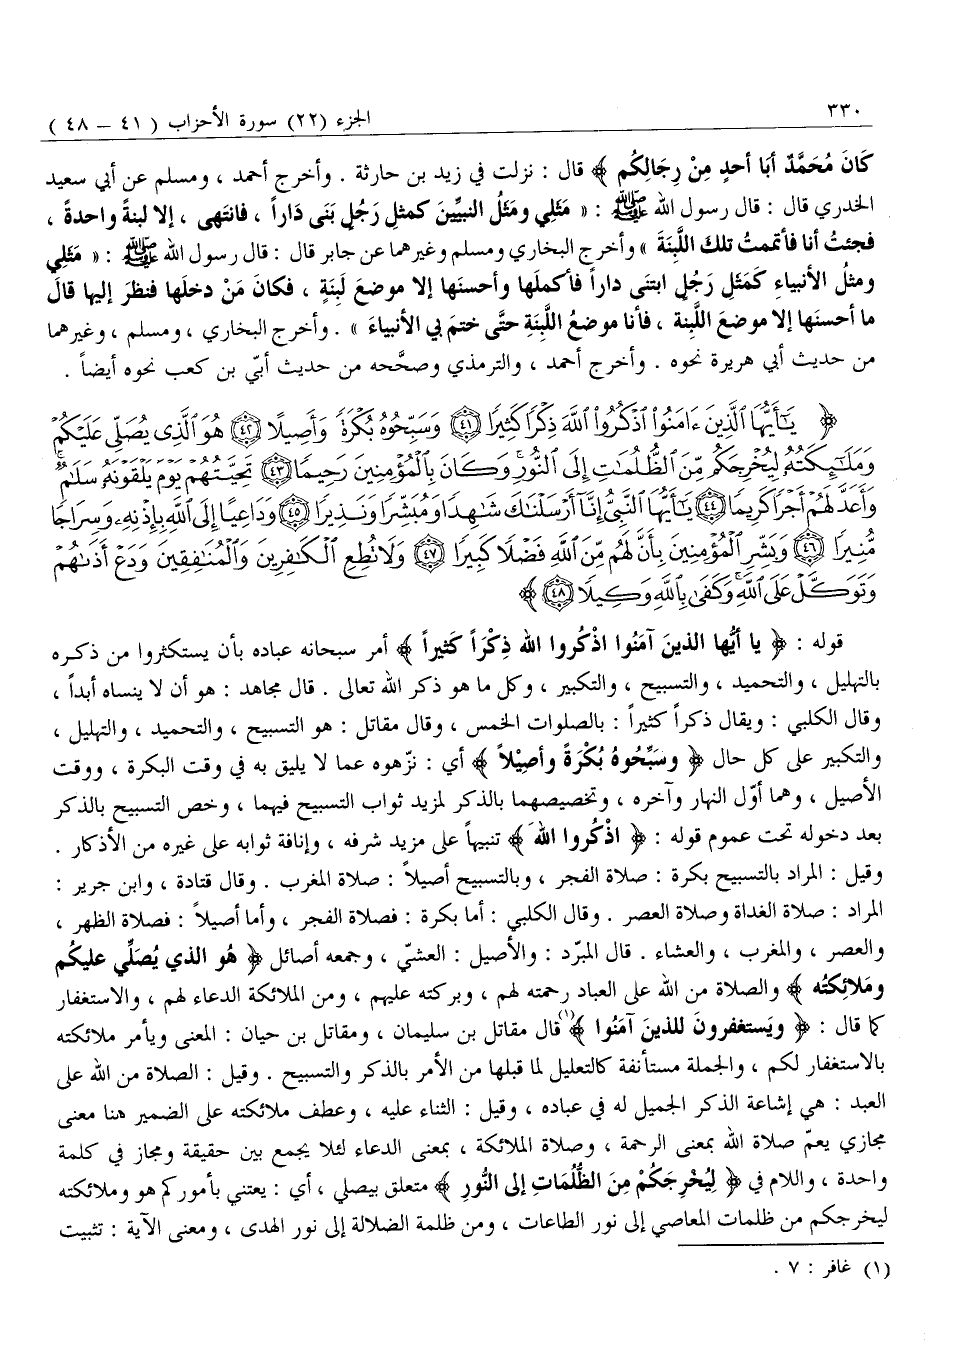 ٣٣٠
الجزء (٢٢) سورة الأحزاب ( ٤١ – ٤٨ )
كَانَ مُحَمَّدٌ أبَا أحدٍ مِنْ رِجَالِكُم ﴾ قال : نزلت في زيد بن حارثة . وأخرج أحمد ، ومسلم عن أبي سعيد
الخدري قال : قال رسول الله ﷺ : « مَثَلِي ومَثَلُ النبيِّينَ كمثلِ رَجُلٍ بَنَى دَاراً ، فانتَهى ، إلا لبنةً واحدةً ،
فجئتُ أنا فأتممتُ تلكَ اللَّبِنَةَ » وأخرج البخاري ومسلم وغيرهما عن جابر قال : قال رسول الله ﷺ : « مَثَلِي
ومثلُ الأنبياءِ كَمَثَلِ رَجُلٍ ابتنَى داراً فأكملَها وأحسنَها إلا موضعَ لَبِنَةٍ ، فكانَ مَنْ دخلَها فنظرَ إليها قالَ
ما أحسنَها إلا موضعَ اللَّبِنة ، فأنا موضعُ اللَّبنَةِ حتَّى ختمَ بي الأنبياءَ » . وأخرج البخاري ، ومسلم ، وغيرهما
من حديث أبي هريرة نحوه . وأخرج أحمد ، والترمذي وصحَّحه من حديث أبيّ بن كعب نحوه أيضاً .
﴿ يَٰٓأَيُّهَا ٱلَّذِينَ ءَامَنُوا۟ ٱذْكُرُوا۟ ٱللَّهَ ذِكْرًا كَثِيرًا ٤١ وَسَبِّحُوهُ بُكْرَةً وَأَصِيلًا ٤٢ هُوَ ٱلَّذِى يُصَلِّى عَلَيْكُمْ
وَمَلَٰٓئِكَتُهُۥ لِيُخْرِجَكُم مِّنَ ٱلظُّلُمَٰتِ إِلَى ٱلنُّورِ ۚ وَكَانَ بِٱلْمُؤْمِنِينَ رَحِيمًا ٤٣ تَحِيَّتُهُمْ يَوْمَ يَلْقَوْنَهُۥ سَلَٰمٌ ۚ
وَأَعَدَّ لَهُمْ أَجْرًا كَرِيمًا ٤٤ يَٰٓأَيُّهَا ٱلنَّبِىُّ إِنَّآ أَرْسَلْنَٰكَ شَٰهِدًا وَمُبَشِّرًا وَنَذِيرًا ٤٥ وَدَاعِيًا إِلَى ٱللَّهِ بِإِذْنِهِۦ وَسِرَاجًا
مُّنِيرًا ٤٦ وَبَشِّرِ ٱلْمُؤْمِنِينَ بِأَنَّ لَهُم مِّنَ ٱللَّهِ فَضْلًا كَبِيرًا ٤٧ وَلَا تُطِعِ ٱلْكَٰفِرِينَ وَٱلْمُنَٰفِقِينَ وَدَعْ أَذَىٰهُمْ
وَتَوَكَّلْ عَلَى ٱللَّهِ ۚ وَكَفَىٰ بِٱللَّهِ وَكِيلًا ٤٨ ﴾
قوله : ﴿ يا أيُّها الذينَ آمَنُوا اذْكُروا الله ذِكْرَاً كَثيراً ﴾ أمر سبحانه عباده بأن يستكثروا من ذكره
بالتهليل ، والتحميد ، والتسبيح ، والتكبير ، وكل ما هو ذكر الله تعالى . قال مجاهد : هو أن لا ينساه أبداً ،
وقال الكلبي : ويقال ذكراً كثيراً : بالصلوات الخمس ، وقال مقاتل : هو التسبيح ، والتحميد ، والتهليل ،
والتكبير على كل حال ﴿ وسَبِّحُوهُ بُكْرَةً وأصِيْلاً ﴾ أي : نزّهوه عما لا يليق به في وقت البكرة ، ووقت
الأصيل ، وهما أوّل النهار وآخره ، وتخصيصهما بالذكر لمزيد ثواب التسبيح فيهما ، وخص التسبيح بالذكر
بعد دخوله تحت عموم قوله : ﴿ اذْكُروا اللهَ ﴾ تنبيهاً على مزيد شرفه ، وإنافة ثوابه على غيره من الأذكار .
وقيل : المراد بالتسبيح بكرة : صلاة الفجر ، وبالتسبيح أصيلاً : صلاة المغرب . وقال قتادة ، وابن جرير :
المراد : صلاة الغداة وصلاة العصر . وقال الكلبي : أما بكرة : فصلاة الفجر ، وأما أصيلاً : فصلاة الظهر ،
والعصر ، والمغرب ، والعشاء . قال المبرّد : والأصيل : العشيّ ، وجمعه أصائل ﴿ هُو الذي يُصَلِّي عليكُم
ومَلائِكتُه ﴾ والصلاة من الله على العباد رحمته لهم ، وبركته عليهم ، ومن الملائكة الدعاء لهم ، والاستغفار
كما قال : ﴿ ويَستغفرونَ للذينَ آمَنُوا ﴾(١) قال مقاتل بن سليمان ، ومقاتل بن حيان : المعنى ويأمر ملائكته
بالاستغفار لكم ، والجملة مستأنفة كالتعليل لما قبلها من الأمر بالذكر والتسبيح . وقيل : الصلاة من الله على
العبد : هي إشاعة الذكر الجميل له في عباده ، وقيل : الثناء عليه ، وعطف ملائكته على الضمير هنا معنى
مجازي يعمّ صلاة الله بمعنى الرحمة ، وصلاة الملائكة ، بمعنى الدعاء لئلا يجمع بين حقيقة ومجاز في كلمة
واحدة ، واللام في ﴿ لِيُخْرِجَكُمْ مِنَ الظُّلُمَاتِ إلى النُّورِ ﴾ متعلق بيصلي ، أي : يعتني بأموركم هو وملائكته
ليخرجكم من ظلمات المعاصي إلى نور الطاعات ، ومن ظلمة الضلالة إلى نور الهدى ، ومعنى الآية : تثبيت
(١) غافر : ٧ .